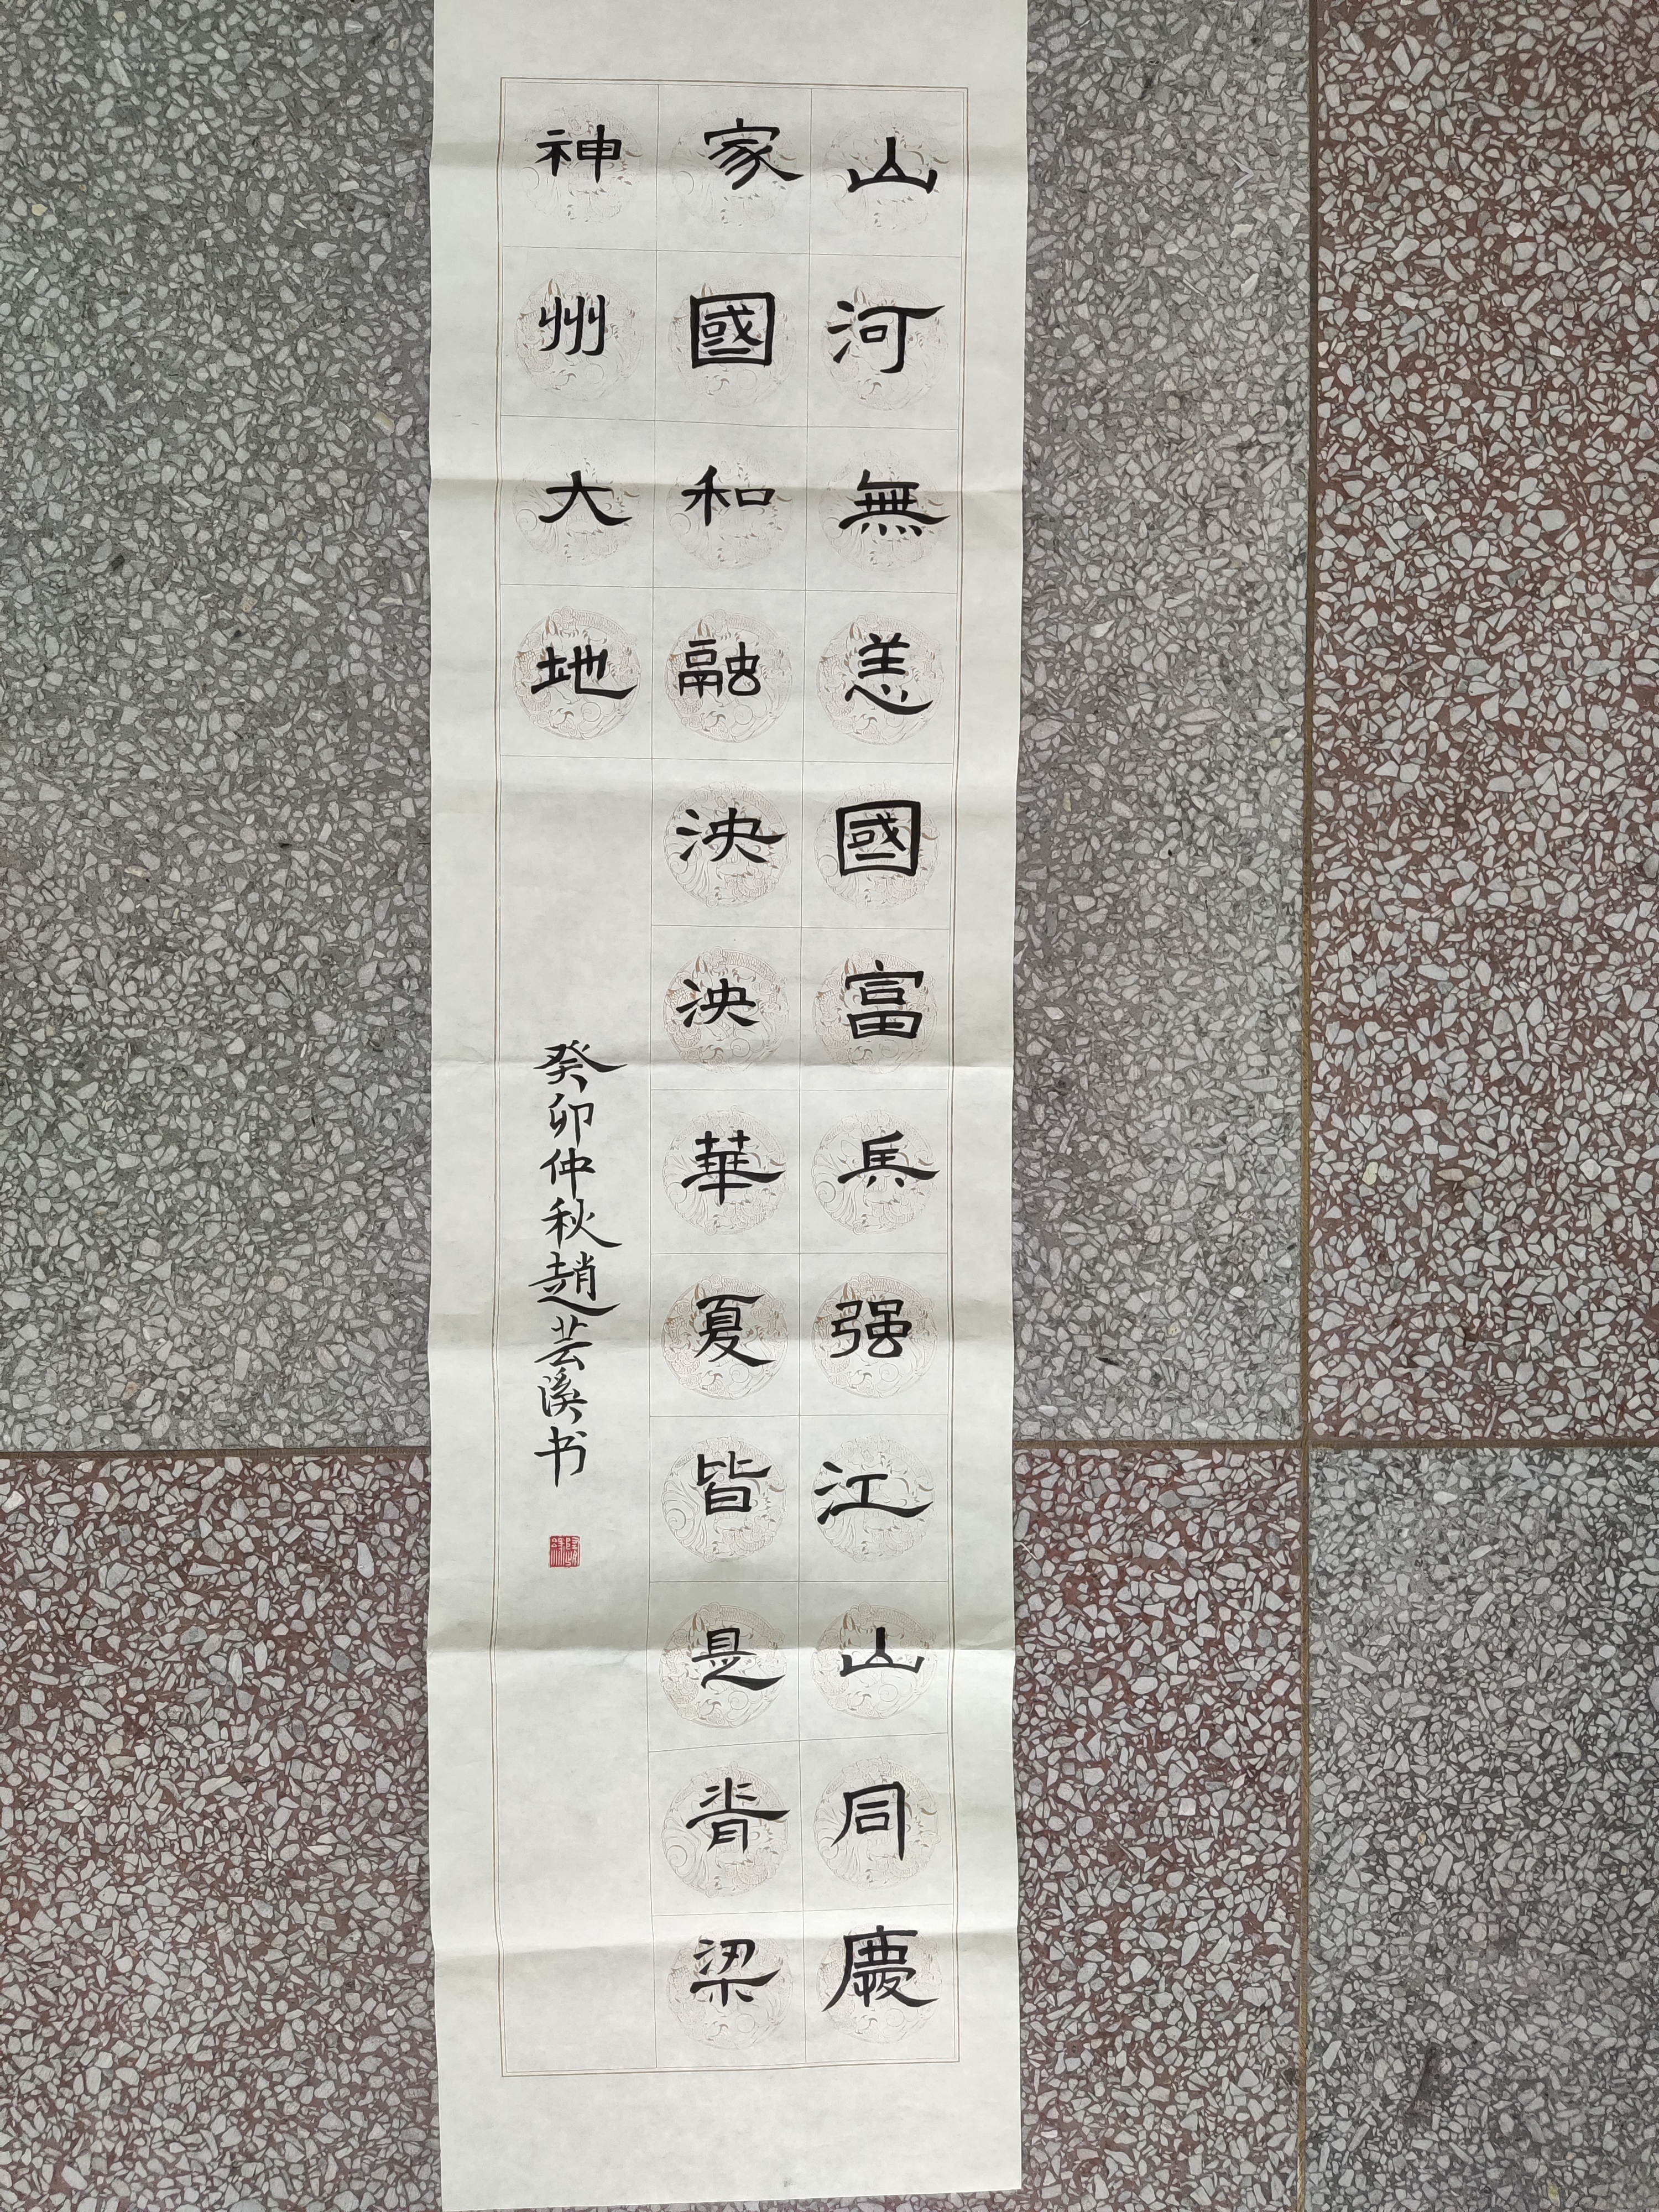 山河無恙國富兵强江山同慶
家國和融泱泱華夏皆是脊梁
神州大地
癸卯仲秋趙芸溪书